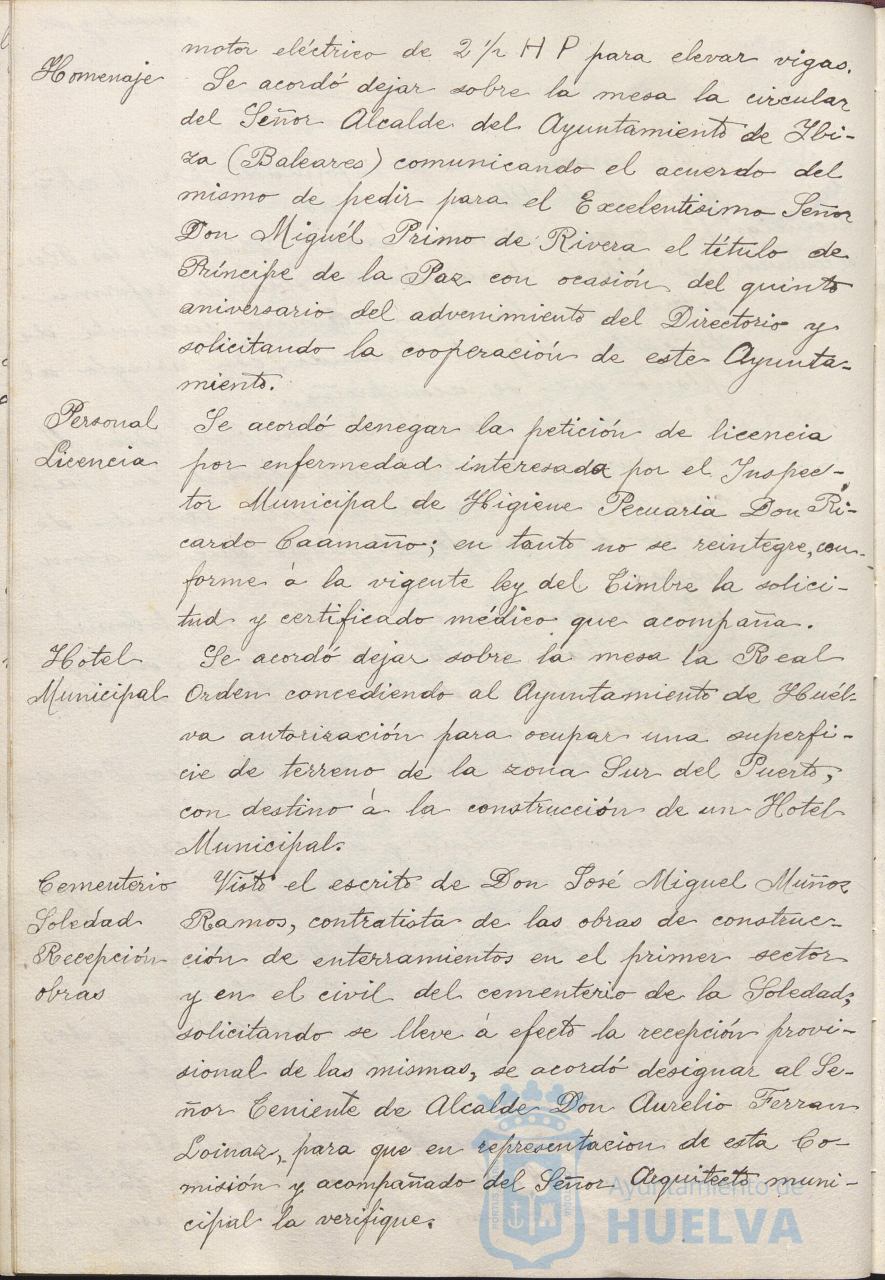 motor eléctrico de 2 1/2 H P para elevar vigas.
Homenaje
Se acordó dejar sobre la mesa la circular
del Señor Alcalde del Ayuntamiento de Ybi-
za (Baleares) comunicando el acuerdo del
mismo de pedir para el Excelentisimo Señor
Don Miguél Primo de Rivera el título de
Príncipe de la Paz con ocasión del quinto
aniversario del advenimiento del Directorio y
solicitando la cooperación de este Ayunta-
miento.
Personal
Licencia
Se acordó denegar la petición de licencia
por enfermedad interesada por el Inspec-
tor Municipal de Higiene Pecuaria Don Ri-
cardo Caamaño; en tanto no se reintegre, con-
forme á la vigente ley del Timbre la solici-
tud y certificado médico que acompaña.
Hotel
Municipal
Se acordó dejar sobre la mesa la Real
Orden concediendo al Ayuntamiento de Huél-
va autorización para ocupar una superfi-
cie de terreno de la zona Sur del Puerto,
con destino á la construcción de un Hotel
Municipal.
Cementerio
Soledad
Recepción
obras
Visto el escrito de Don José Miguel Muñoz
Ramos, contratista de las obras de construc-
ción de enterramientos en el primer sector
y en el civil del cementerio de la Soledad,
solicitando se lleve á efecto la recepción provi-
sional de las mismas, se acordó designar al Se-
ñor Teniente de Alcalde Don Aurelio Ferran
Loinaz, para que en representacion de esta Co-
misión y acompañado del Señor Arquitecto muni-
cipal la verifique.
Ayuntamiento de
HUELVA